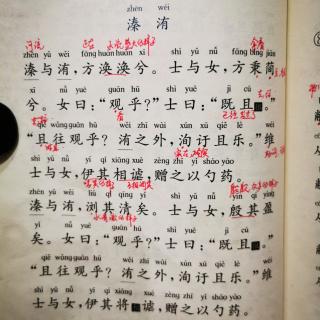 zhēn wěi
溱 洧
zhēn yǔ wěi fāng huàn huàn xī shì yǔ nǚ fāng bǐng jiān
溱与洧，方涣涣兮。士与女，方秉蕑
xī nǚ yuē guān hū shì yuē jì cú
兮。女曰：“观乎？”士曰：“既且。”
qiě wǎng guān hū wěi zhī wài xún xū qiě lè wéi
“且往观乎？洧之外，洵讦且乐。”维
shì yǔ nǚ yī qí xiāng xuè zèng zhī yǐ sháo yào
士与女，伊其相谑，赠之以勺药。
zhēn yǔ wěi liú qí qīng yǐ shì yǔ nǚ yīn qí yíng
溱与洧，浏其清矣。士与女，殷其盈
yǐ nǚ yuē guān hū shì yuē jì cú
矣。女曰：“观乎？”士曰：“既且。”
qiě wǎng guān hū wěi zhī wài xún xū qiě lè wéi
“且往观乎？洧之外，洵讦且乐。”维
shì yǔ nǚ yī qí xiāng xuè zèng zhī yǐ sháo yào
士与女，伊其将谑，赠之以勺药。